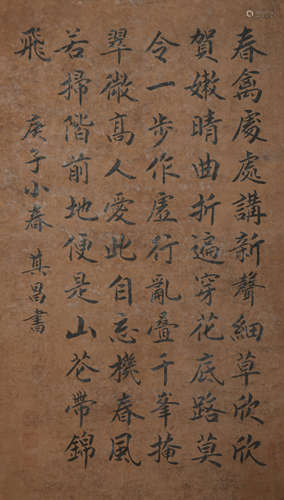 春禽處處講新聲細草欣欣
賀嫩晴曲折遍穿花底路莫
令一步作虛行亂疊千峯掩
翠微高人愛此自忘機春風
若掃階前地便是山花帶錦
飛
庚子小春 其昌書